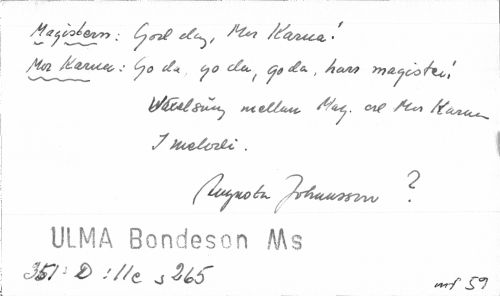 Magistern: God dag, Mor Karna!
Mor Karna: Go da, go da, goda, hars magister!
Växelsång mellan Mag. o Mor Karna
I melodi.
Augusta Johansson ?
ULMA Bondeson Ms
351: D: 11c s 265
nr 59